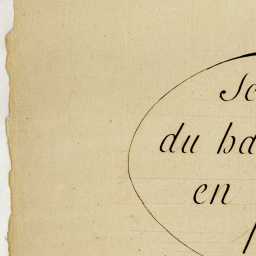 Sc
du ba
en